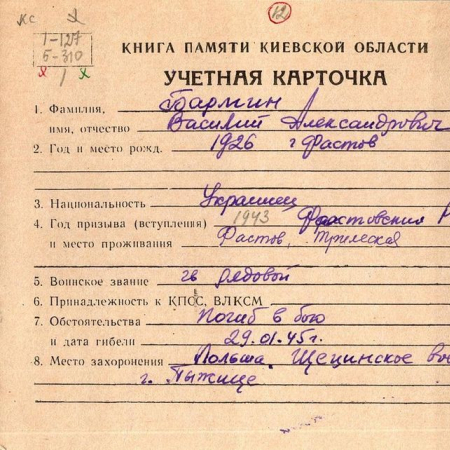 кс
12
1-127
5-310
КНИГА ПАМЯТИ КИЕВСКОЙ ОБЛАСТИ
УЧЕТНАЯ КАРТОЧКА
1. Фамилия, Бармин
имя, отчество Василий Александрович
2. Год и место рожд. 1926 г Фастов
3. Национальность Украинец
4. Год призыва (вступления) 1943 Фастовский Р
и место проживания Фастов,
5. Воинское звание гв рядовой
6. Принадлежность к КПСС, ВЛКСМ
7. Обстоятельства Погиб в бою
и дата гибели 29.01.45г.
8. Место захоронения Польша. Щецинское вое
г. Пыжице.